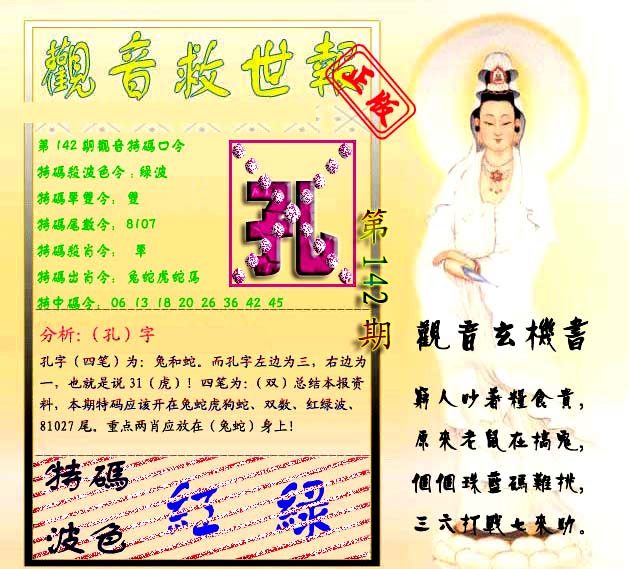 觀音救世報
正传
第142期觀音特碼口令
特碼殺波色令:綠波
特碼單雙令: 雙
特碼尾數令: 8107
特碼殺肖令: 單
特碼出肖令: 兔蛇虎蛇馬
特中碼令: 06 13 18 20 26 36 42 45
孔
第142期
分析:（孔）字
孔字（四笔）为：兔和蛇。而孔字左边为三，右边为
一，也就是说31（虎）！四笔为：（双）总结本报资
料，本期特码应该开在兔蛇虎狗蛇、双数、红绿波、
81027尾。重点两肖应放在（兔蛇）身上！
特碼
波色
紅 綠
觀音玄機書
窮人吵著糧食貴，
原來老鼠在搞鬼，
個個珠藍碼難挑，
三六打戰七來助。